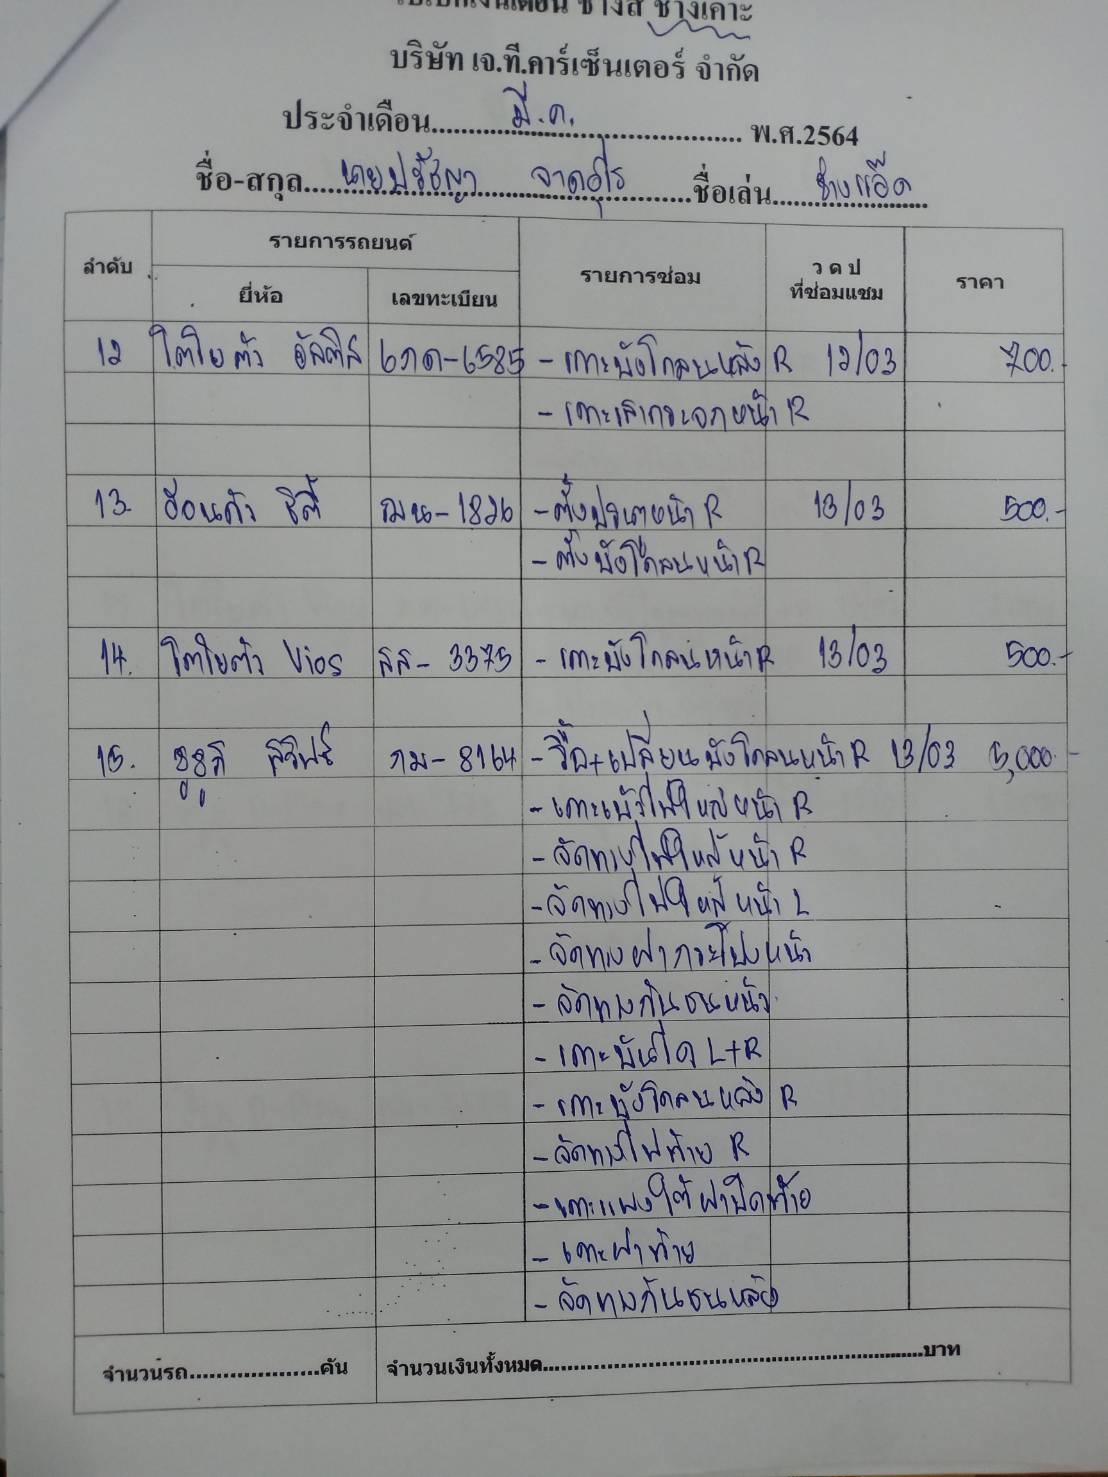 ใบเบิกเงินเดือน ช่างสี ช่างเคาะ
บริษัท เจ.ที.คาร์เซ็นเตอร์ จำกัด
ประจำเดือน..... มี.ค. ..... พ.ศ.2564
ชื่อ-สกุล..... นายปรัชญา จาดอุไร .....ชื่อเล่น..... ช่างแอ๊ด
ลำดับ รายการรถยนต์ รายการซ่อม ว ด ป ที่ซ่อมแซม ราคา
ยี่ห้อ เลขทะเบียน
12 โตโยต้า อัลติส 6กด-6585 - เคาะบังโคลนหลัง R 12/03 700.-
- เคาะเสากระจกหน้า R
13. ฮอนด้า ซิตี้ ฌน-1826 - ตั้งประตูหน้า R 13/03 500.-
- ตั้งบังโคลนหน้า R
14. โตโยต้า Vios สส-3375 - เคาะบังโคลนหน้า R 13/03 500.-
15. ซูซูกิ สวิฟท์ กม-8164 - รื้อ+เปลี่ยนบังโคลนหน้า R 13/03 5,000.-
- เคาะเบ้าไฟใหญ่หน้า R
- จัดทางไฟใหญ่หน้า R
- จัดทางไฟใหญ่หน้า L
- จัดทางฝากระโปงหน้า
- จัดทางกันชนหน้า
- เคาะบันได L+R
- เคาะบังโคลนหลัง R
- จัดทางไฟท้าย R
- เคาะแผงใต้ฝาปิดท้าย
- เคาะฝาท้าย
- จัดทางกันชนหลัง
จำนวนรถ....................คัน จำนวนเงินทั้งหมด..............................บาท